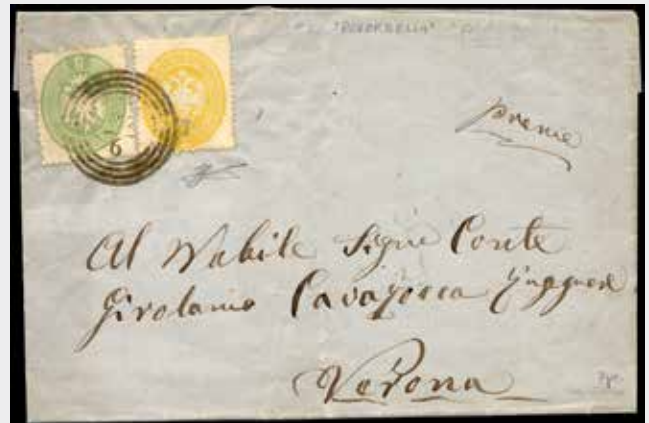 "ROVERBELLA"
preme
Al Nobile Sigr Conte
Girolamo Cavazocca Ingegnere
Verona
6